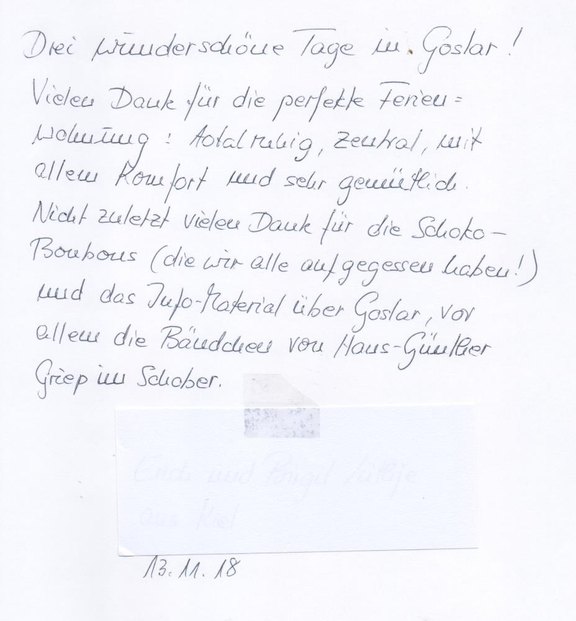 Drei wunderschöne Tage in Goslar!
Vielen Dank für die perfekte Ferien=
wohnung: total ruhig, zentral, mit
allem Komfort und sehr gemütlich.
Nicht zuletzt vielen Dank für die Schoko-
Bonbons (die wir alle aufgegessen haben!)
und das Info-Material über Goslar, vor
allem die Bändchen von Hans-Günther
Griep im Schober.
13.11.18